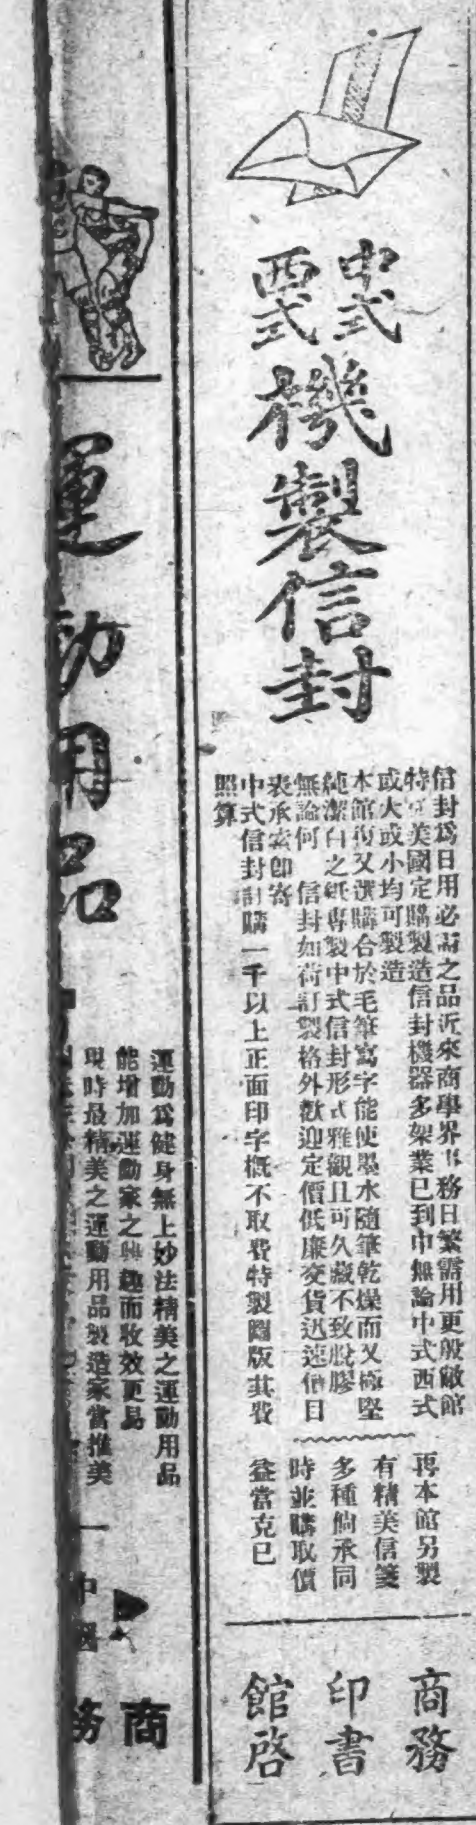 中式
西式
機製信封
信封爲日用必需之品近來商學界事務日繁需用更殷敝館
特向美國定購製造信封機器多架業已到申無論中式西式
或大或小均可製造
本館復又選購合於毛筆寫字能使墨水隨筆乾燥而又極堅
純潔白之紙專製中式信封形式雅觀且可久藏不致脫膠
無論何 信封如荷訂製格外歡迎定價低廉交貨迅速價目
表承索卽寄
中式信封訂購一千以上正面印字槪不取費特製圖版其費
照算
再本館另製
有精美信箋
多種倘承同
時並購取價
益當克己
商務
印書
館啓
運動用品
運動爲健身無上妙法精美之運動用品
能增加運動家之興趣而收效更易
現時最精美之運動用品製造家當推美
中國
商
務